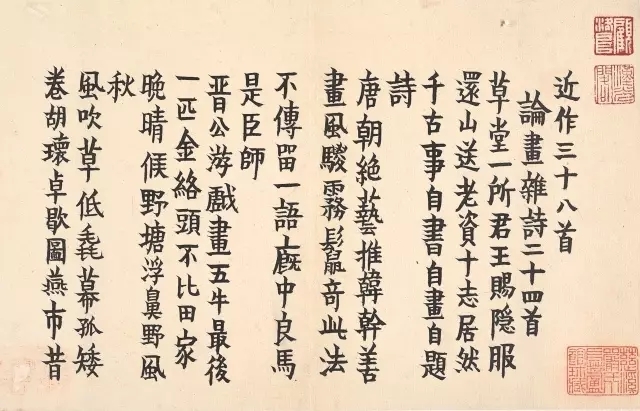 近作三十八首
論畫雜詩二十四首
草堂一所君王賜隱服
還山送老資十志居然
千古事自書自畫自題
詩
唐朝絶藝推韓幹善
畫風騣霧鬣奇此法
不傳留一語廐中良馬
是臣師
晋公游戲畫五牛最後
一匹金絡頭不比田家
晚晴候野塘浮鼻野風
秋
風吹草低毳幕孤矮
卷胡瓌卓歇圖燕市昔